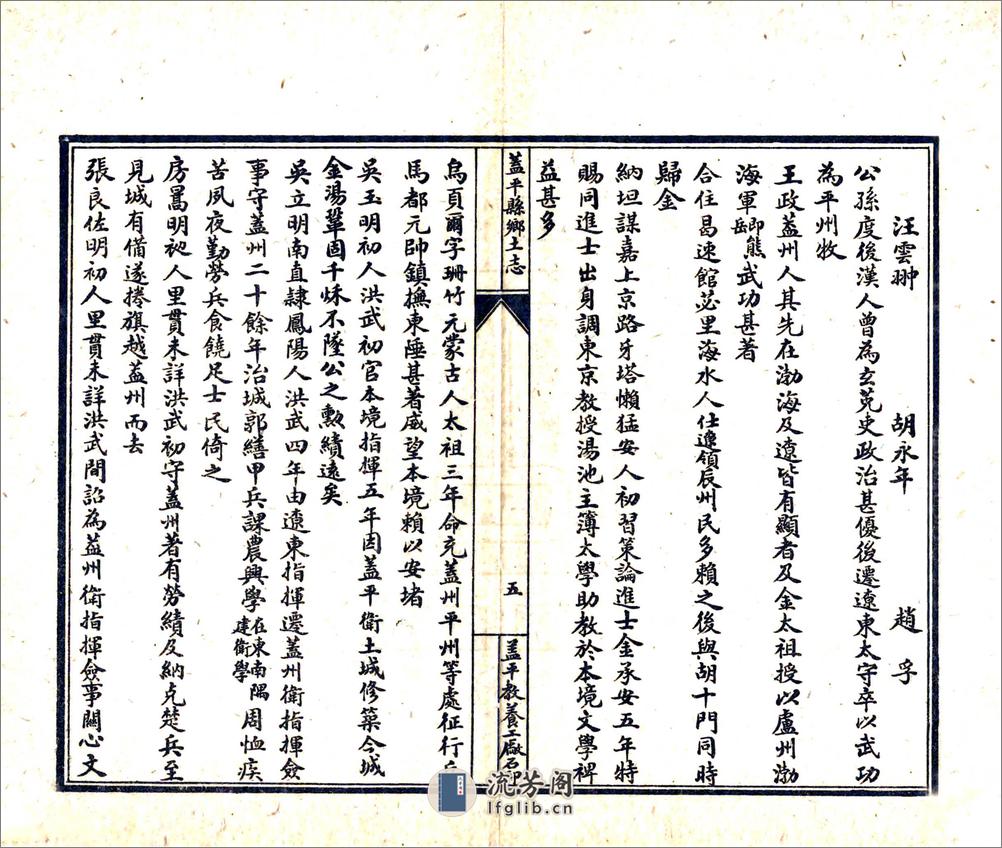 汪雲翀 胡永年 趙孚
公孫度後漢人曾為玄菟吏政治甚優後遷遼東太守卒以武功
為平州牧
王政蓋州人其先在渤海及遼皆有顯者及金太祖授以盧州渤
海軍熊岳卿武功甚著
合住曷速館苾里海水人仕遼領辰州民多賴之後與胡十門同時
歸金
納坦謀嘉上京路牙塔懶猛安人初習策論進士金承安五年特
賜同進士出身調東京教授湯池主簿太學助教於本境文學裨
益甚多
蓋平縣鄉土志
五
蓋平教養工廠石印
烏頁爾字珊竹元蒙古人太祖三年命充蓋州平州等處征行兵
馬都元帥鎮撫東陲甚著威望本境賴以安堵
吳玉明初人洪武初官本境指揮五年因蓋平衛土城修築今城
金湯鞏固千秌不墜公之勳績遠矣
吳立明南直隸鳳陽人洪武四年由遼東指揮遷蓋州衛指揮僉
事守蓋州二十餘年治城郭繕甲兵課農興學在東南隅建衛學周恤疾
苦夙夜勤勞兵食饒足士民倚之
房暠明初人里貫未詳洪武初守蓋州著有勞績及納克楚兵至
見城有備遂捲旗越蓋州而去
張良佐明初人里貫未詳洪武間詔為蓋州衛指揮僉事關心文
流芳阁
lfglib.cn